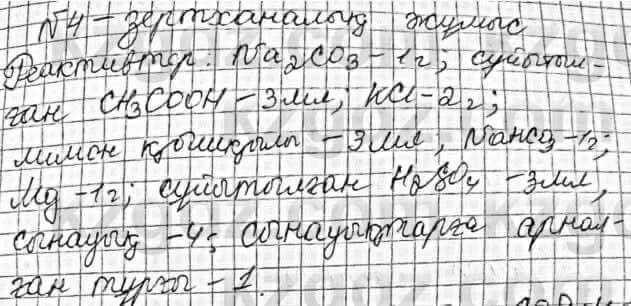 №4 – зертханалық жұмыс
Реактивтер: Na₂CO₃ – 1г; сұйытыл-
ған CH₃COOH – 3мл; KCl – 2г;
лимон қышқылы – 3мл; NaHCO₃ – 1г;
Mg – 1г; сұйытылған H₂SO₄ – 3мл,
сынауық – 4; сынауықтарға арнал-
ған тұрғы – 1.